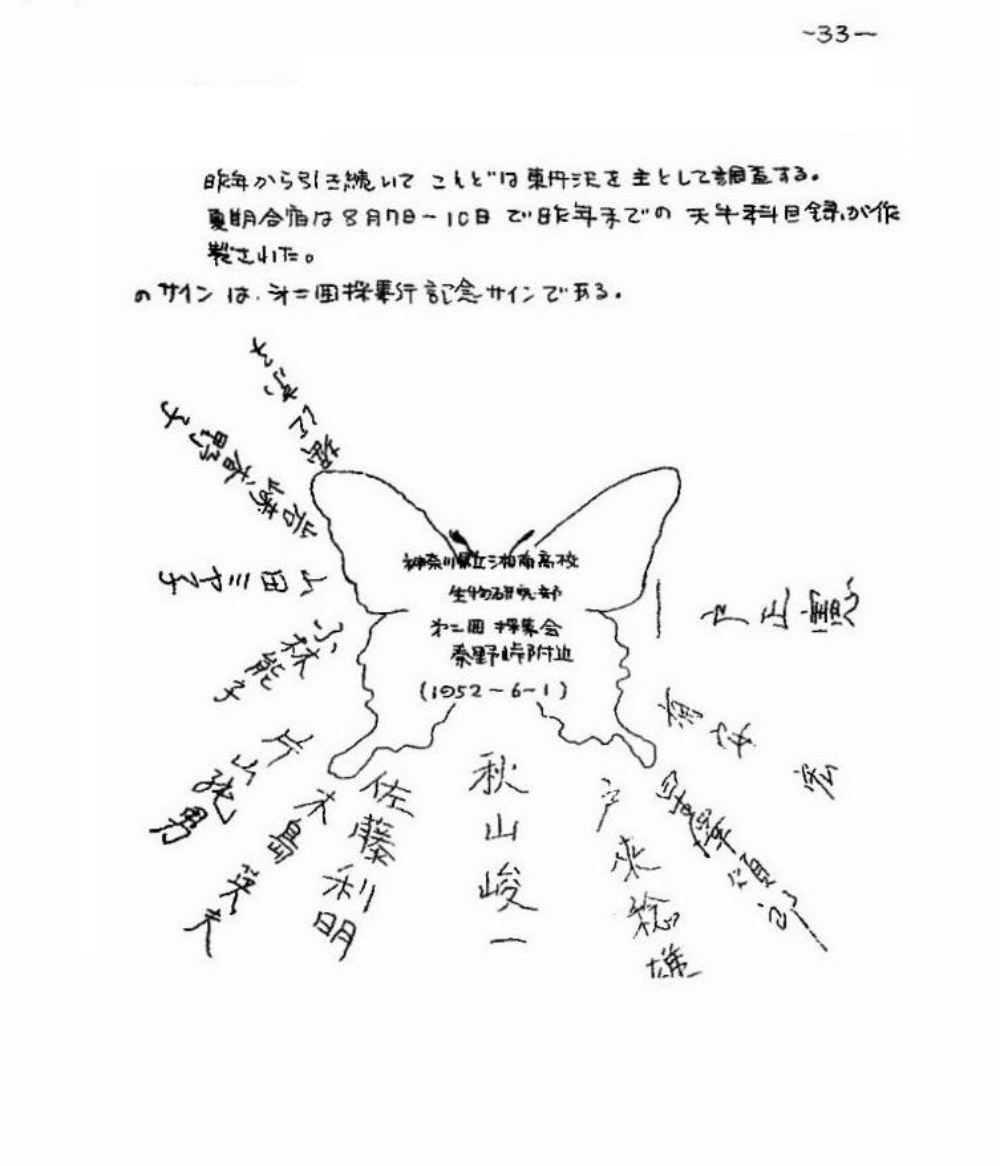 ~33ー
昨年から引き続いて こんどは東丹沢を主として調査する。
夏期合宿は8月7日~10日で昨年までの 天牛科目録が作
製された。
のサインは、才二回採集行記念サインである。
神奈川県立湘南高校
生物研究部
才二回 採集会
秦野峠附近
(1952~6-1)
岩崎香野子
山田ミヤ子
小林能子
片山純男
木島英夫
佐藤利明
秋山峻一
戸来稔雄